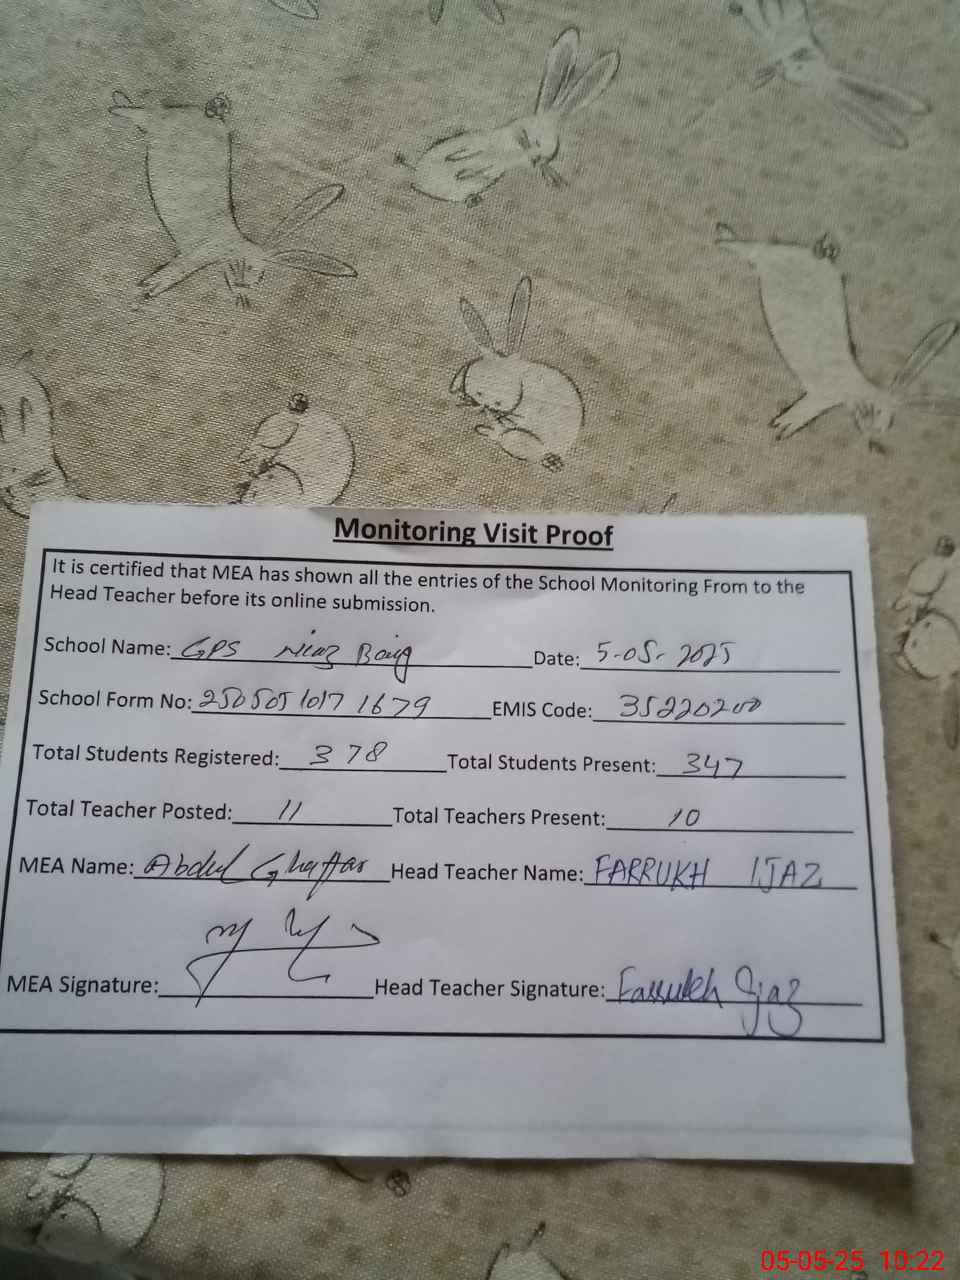 Monitoring Visit Proof
It is certified that MEA has shown all the entries of the School Monitoring From to the
Head Teacher before its online submission.
School Name: GPS Niaz Baig Date: 5-05-2025
School Form No: 250505 1017 1679 EMIS Code: 35220200
Total Students Registered: 378 Total Students Present: 347
Total Teacher Posted: 11 Total Teachers Present: 10
MEA Name: Abdul Ghaffar Head Teacher Name: FARRUKH IJAZ
MEA Signature: Head Teacher Signature: Farrukh Ijaz
05-05-25 10:22